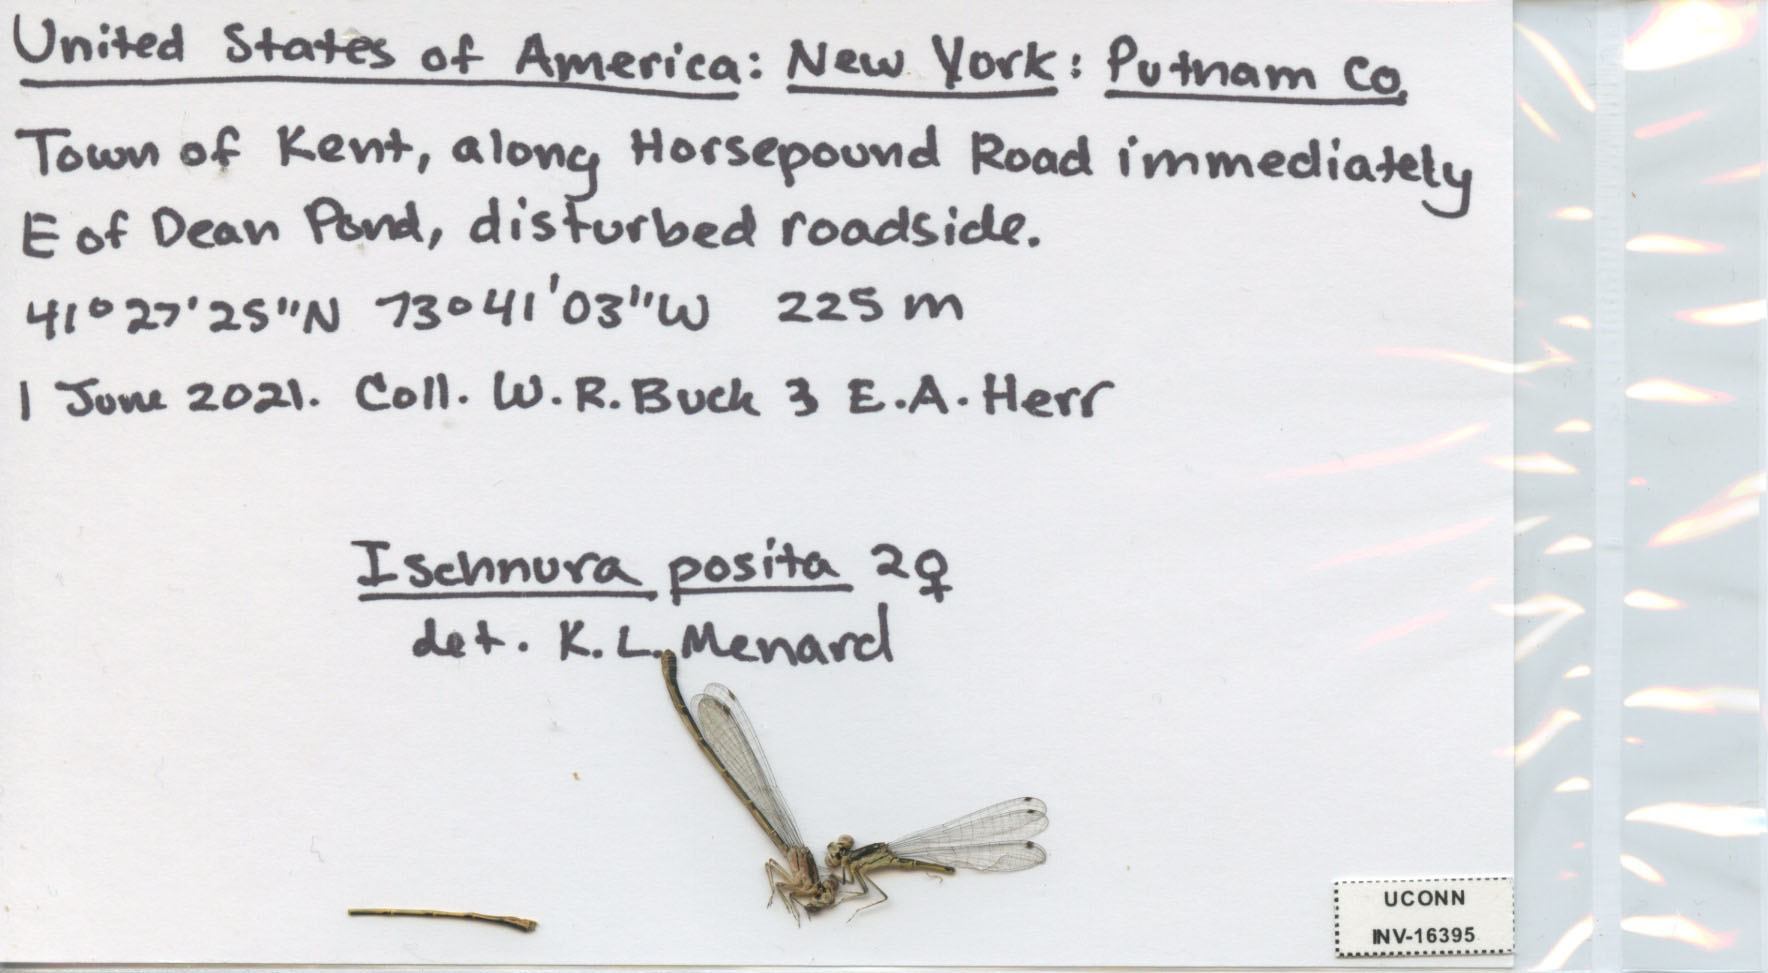 United States of America: New York: Putnam Co.
Town of Kent, along Horsepound Road immediately
E of Dean Pond, disturbed roadside.
41°27'25"N 73°41'03"W 225 m
1 June 2021. Coll. W.R. Buck & E.A. Herr
Ischnura posita 2♀
det. K.L. Menard
UCONN
INV-16395